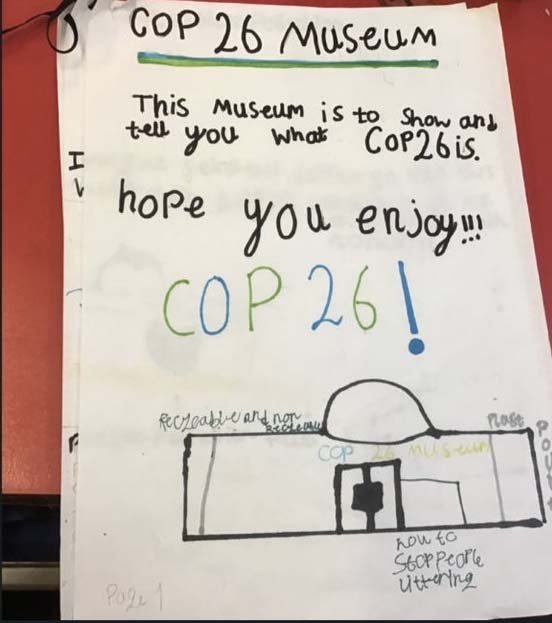 COP 26 Museum
This Museum is to show and
tell you what COP26 is.
hope you enjoy!!!
COP 26!
and non
Plast
COP 26 Museum
how to
Stop People
Littering
Page 1